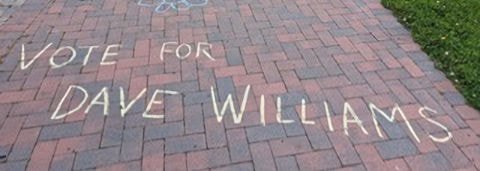 VOTE FOR
DAVE WILLIAMS